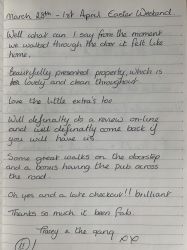 March 28th - 1st April Easter Weekend
Well what can I say from the moment
we walked through the door it felt like
home.
Beautifully presented property, which is
so lovely and clean throughout
Love the little extra's too
Will definatly do a review on-line
and will definatly come back if
you will have us
Some great walks on the doorstep
and a bonus having the pub across
the road.
Oh yes and a late checkout!! brilliant
Thanks so much it been fab
Tracy & the gang
xx